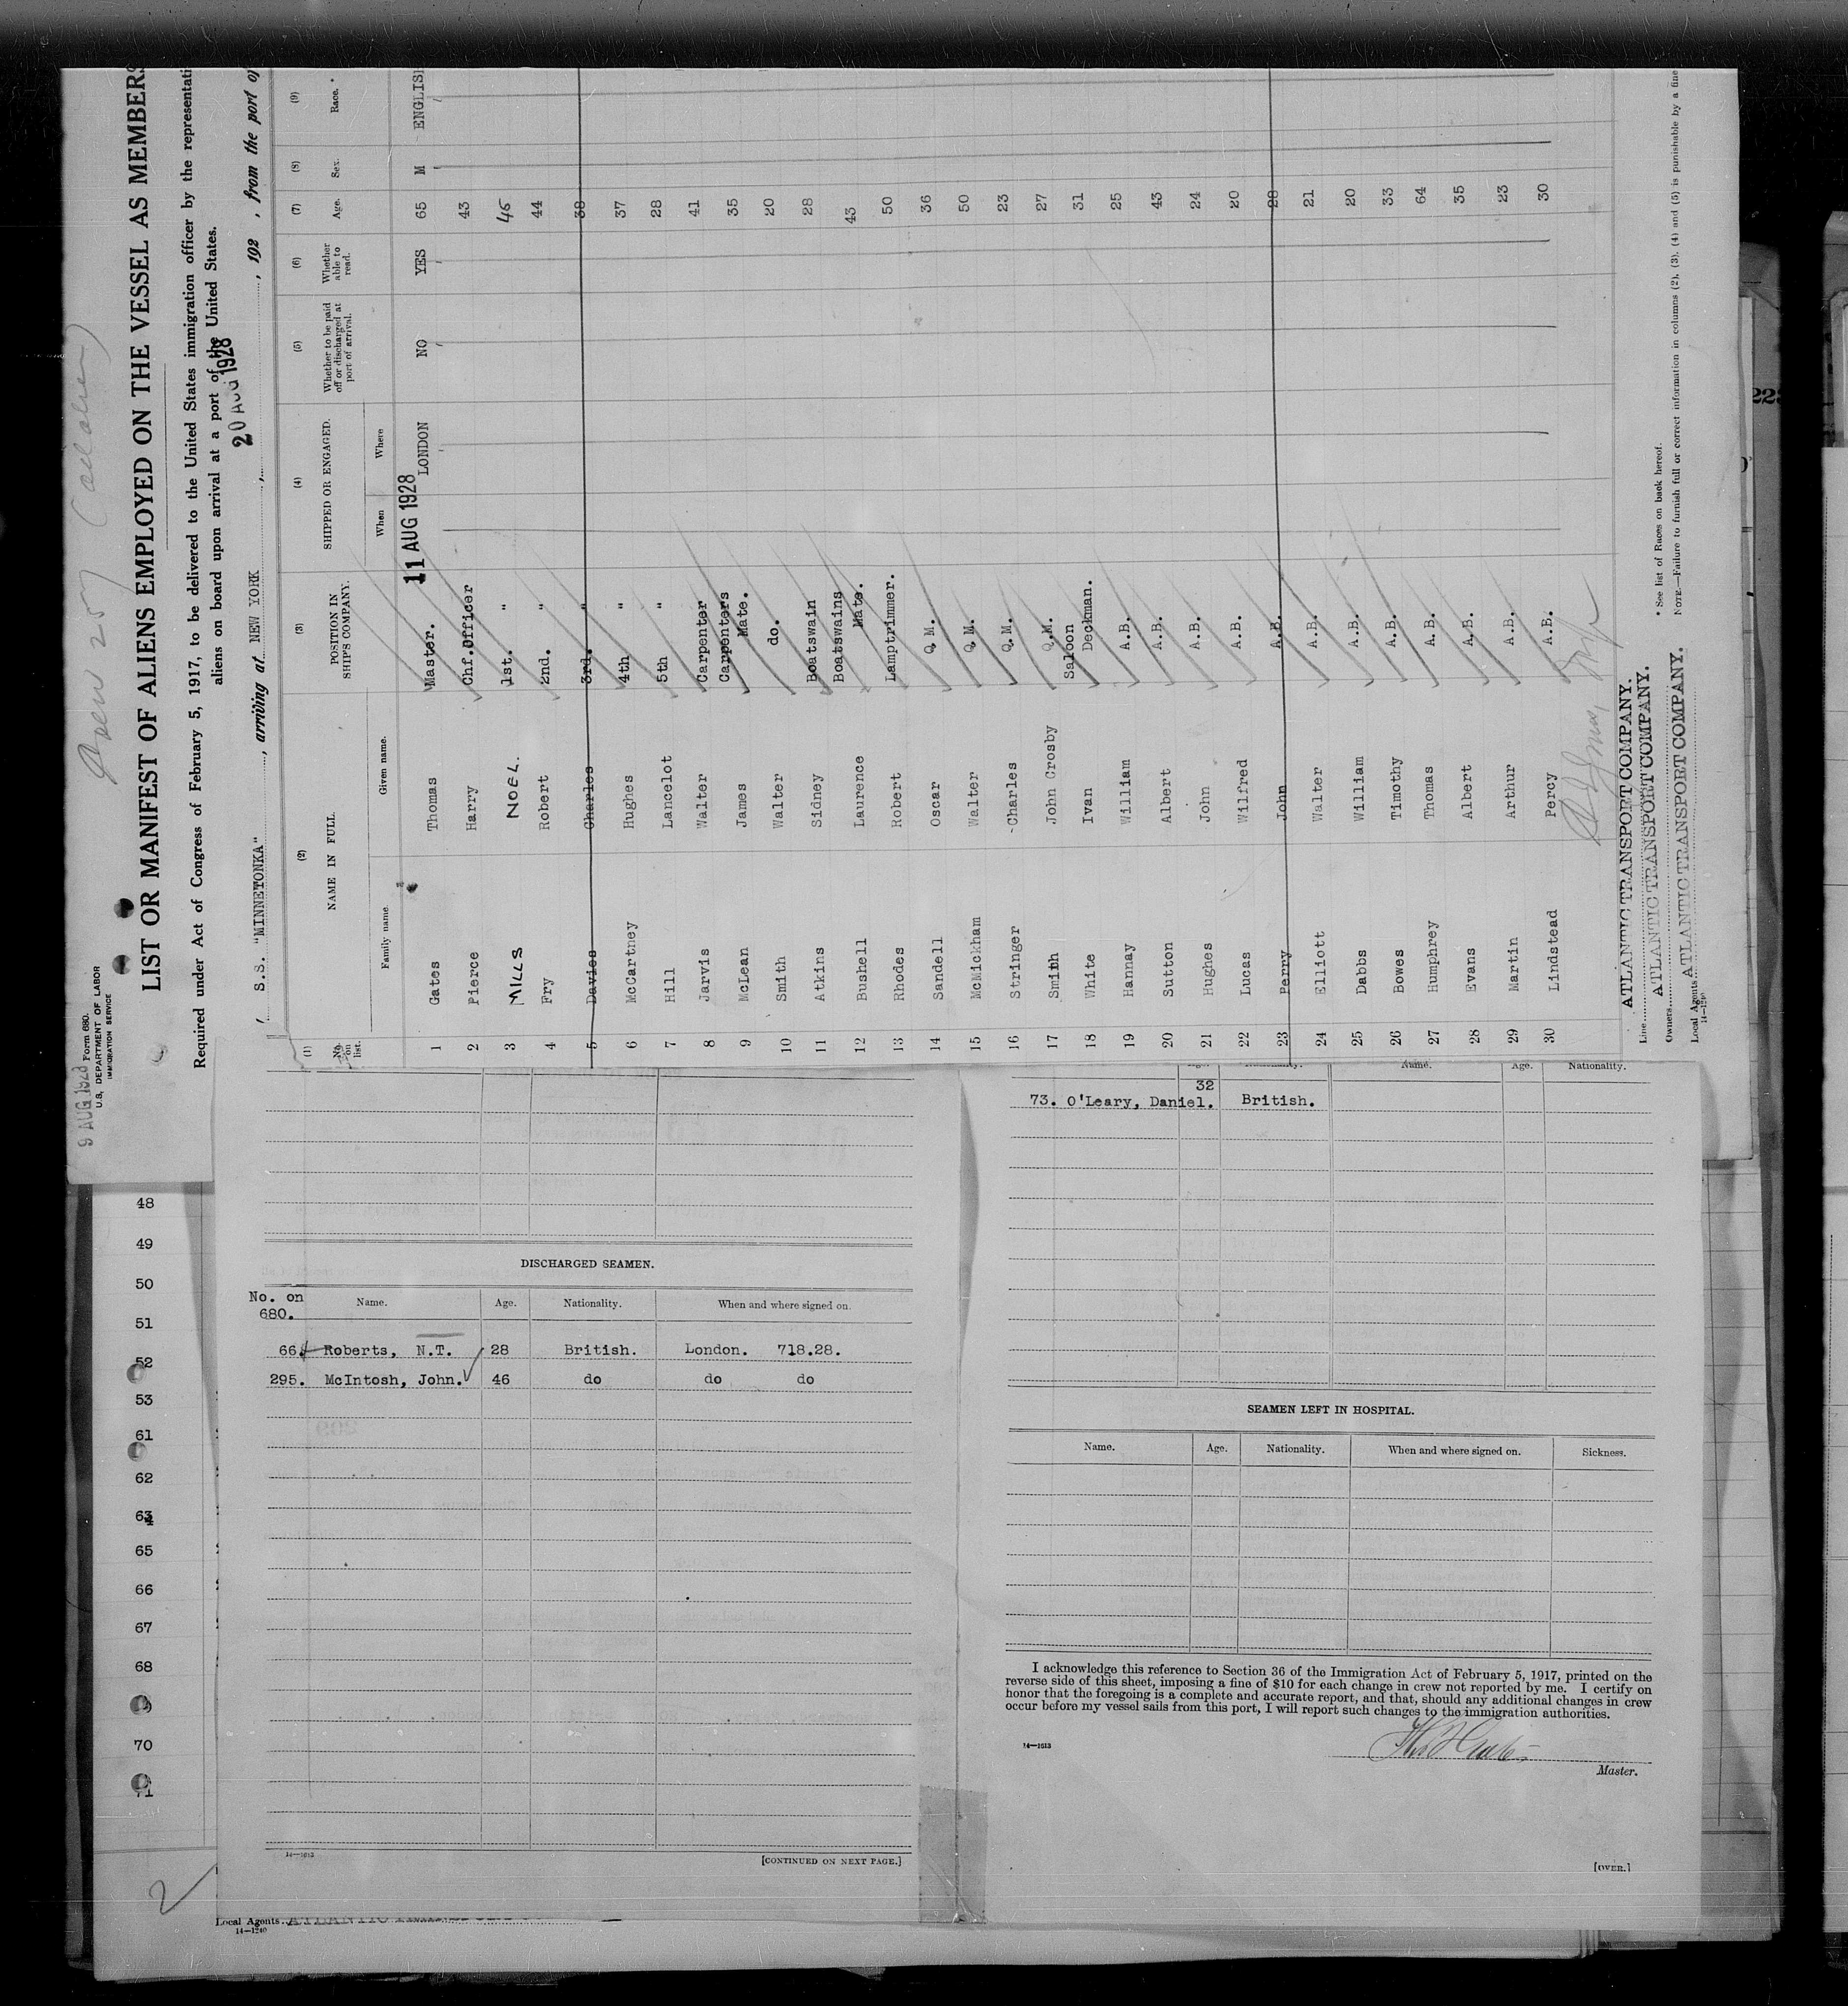 Crew 257 (aliens)
9 AUG 1928 Form 680.
U.S. DEPARTMENT OF LABOR
IMMIGRATION SERVICE
LIST OR MANIFEST OF ALIENS EMPLOYED ON THE VESSEL AS MEMBERS
Required under Act of Congress of February 5, 1917, to be delivered to the United States immigration officer by the representati
aliens on board upon arrival at a port of the United States.
20 AUG 1928
S.S. "MINNETONKA", arriving at NEW YORK, 192 , from the port of
(1) (2) (3) (4) (5) (6) (7) (8) (9)
No. on list. NAME IN FULL POSITION IN SHIP'S COMPANY. SHIPPED OR ENGAGED. Whether to be paid off or discharged at port of arrival. Whether able to read. Age. Sex. Race. *
Family name. Given name. When Where
11 AUG 1928
1 Gates Thomas Master. LONDON NO YES 65 M ENGLISH
2 Pierce Harry Chf.Officer 43
3 MILLS NOEL. 1st. " 45
4 Fry Robert 2nd. " 44
5 Davies Charles 3rd. " 38
6 McCartney Hughes 4th " 37
7 Hill Lancelot 5th " 28
8 Jarvis Walter Carpenter 41
9 McLean James Carpenters Mate. 35
10 Smith Walter do. 20
11 Atkins Sidney Boatswain 28
12 Bushell Laurence Boatswains Mate. 43
13 Rhodes Robert Lamptrimmer. 50
14 Sandell Oscar Q.M. 36
15 McMickham Walter Q.M. 50
16 Stringer Charles Q.M. 23
17 Smith John Crosby Q.M. 27
18 White Ivan Saloon Deckman. 31
19 Hannay William A.B. 25
20 Sutton Albert A.B. 43
21 Hughes John A.B. 24
22 Lucas Wilfred A.B. 20
23 Perry John A.B. 28
24 Elliott Walter A.B. 21
25 Dabbs William A.B. 20
26 Bowes Timothy A.B. 33
27 Humphrey Thomas A.B. 64
28 Evans Albert A.B. 35
29 Martin Arthur A.B. 23
30 Lindstead Percy A.B. 30
ATLANTIC TRANSPORT COMPANY.
Line ATLANTIC TRANSPORT COMPANY.
Owners
Local Agents ATLANTIC TRANSPORT COMPANY.
14—1240
* See list of Races on back hereof.
NOTE.—Failure to furnish full or correct information in columns (2), (3), (4) and (5) is punishable by a fine
48
49
50
51
52
53
61
62
63
65
66
67
68
69
70
71
2
DISCHARGED SEAMEN.
No. on 680. Name. Age. Nationality. When and where signed on.
66. Roberts, N.T. 28 British. London. 718.28.
295. McIntosh, John. 46 do do do
14—1613
[CONTINUED ON NEXT PAGE.]
Local Agents
14—1240
Name. Age. Nationality.
32
73. O'Leary, Daniel. British.
SEAMEN LEFT IN HOSPITAL.
Name. Age. Nationality. When and where signed on. Sickness.
I acknowledge this reference to Section 36 of the Immigration Act of February 5, 1917, printed on the
reverse side of this sheet, imposing a fine of $10 for each change in crew not reported by me. I certify on
honor that the foregoing is a complete and accurate report, and that, should any additional changes in crew
occur before my vessel sails from this port, I will report such changes to the immigration authorities.
14—1613
Master.
[OVER.]